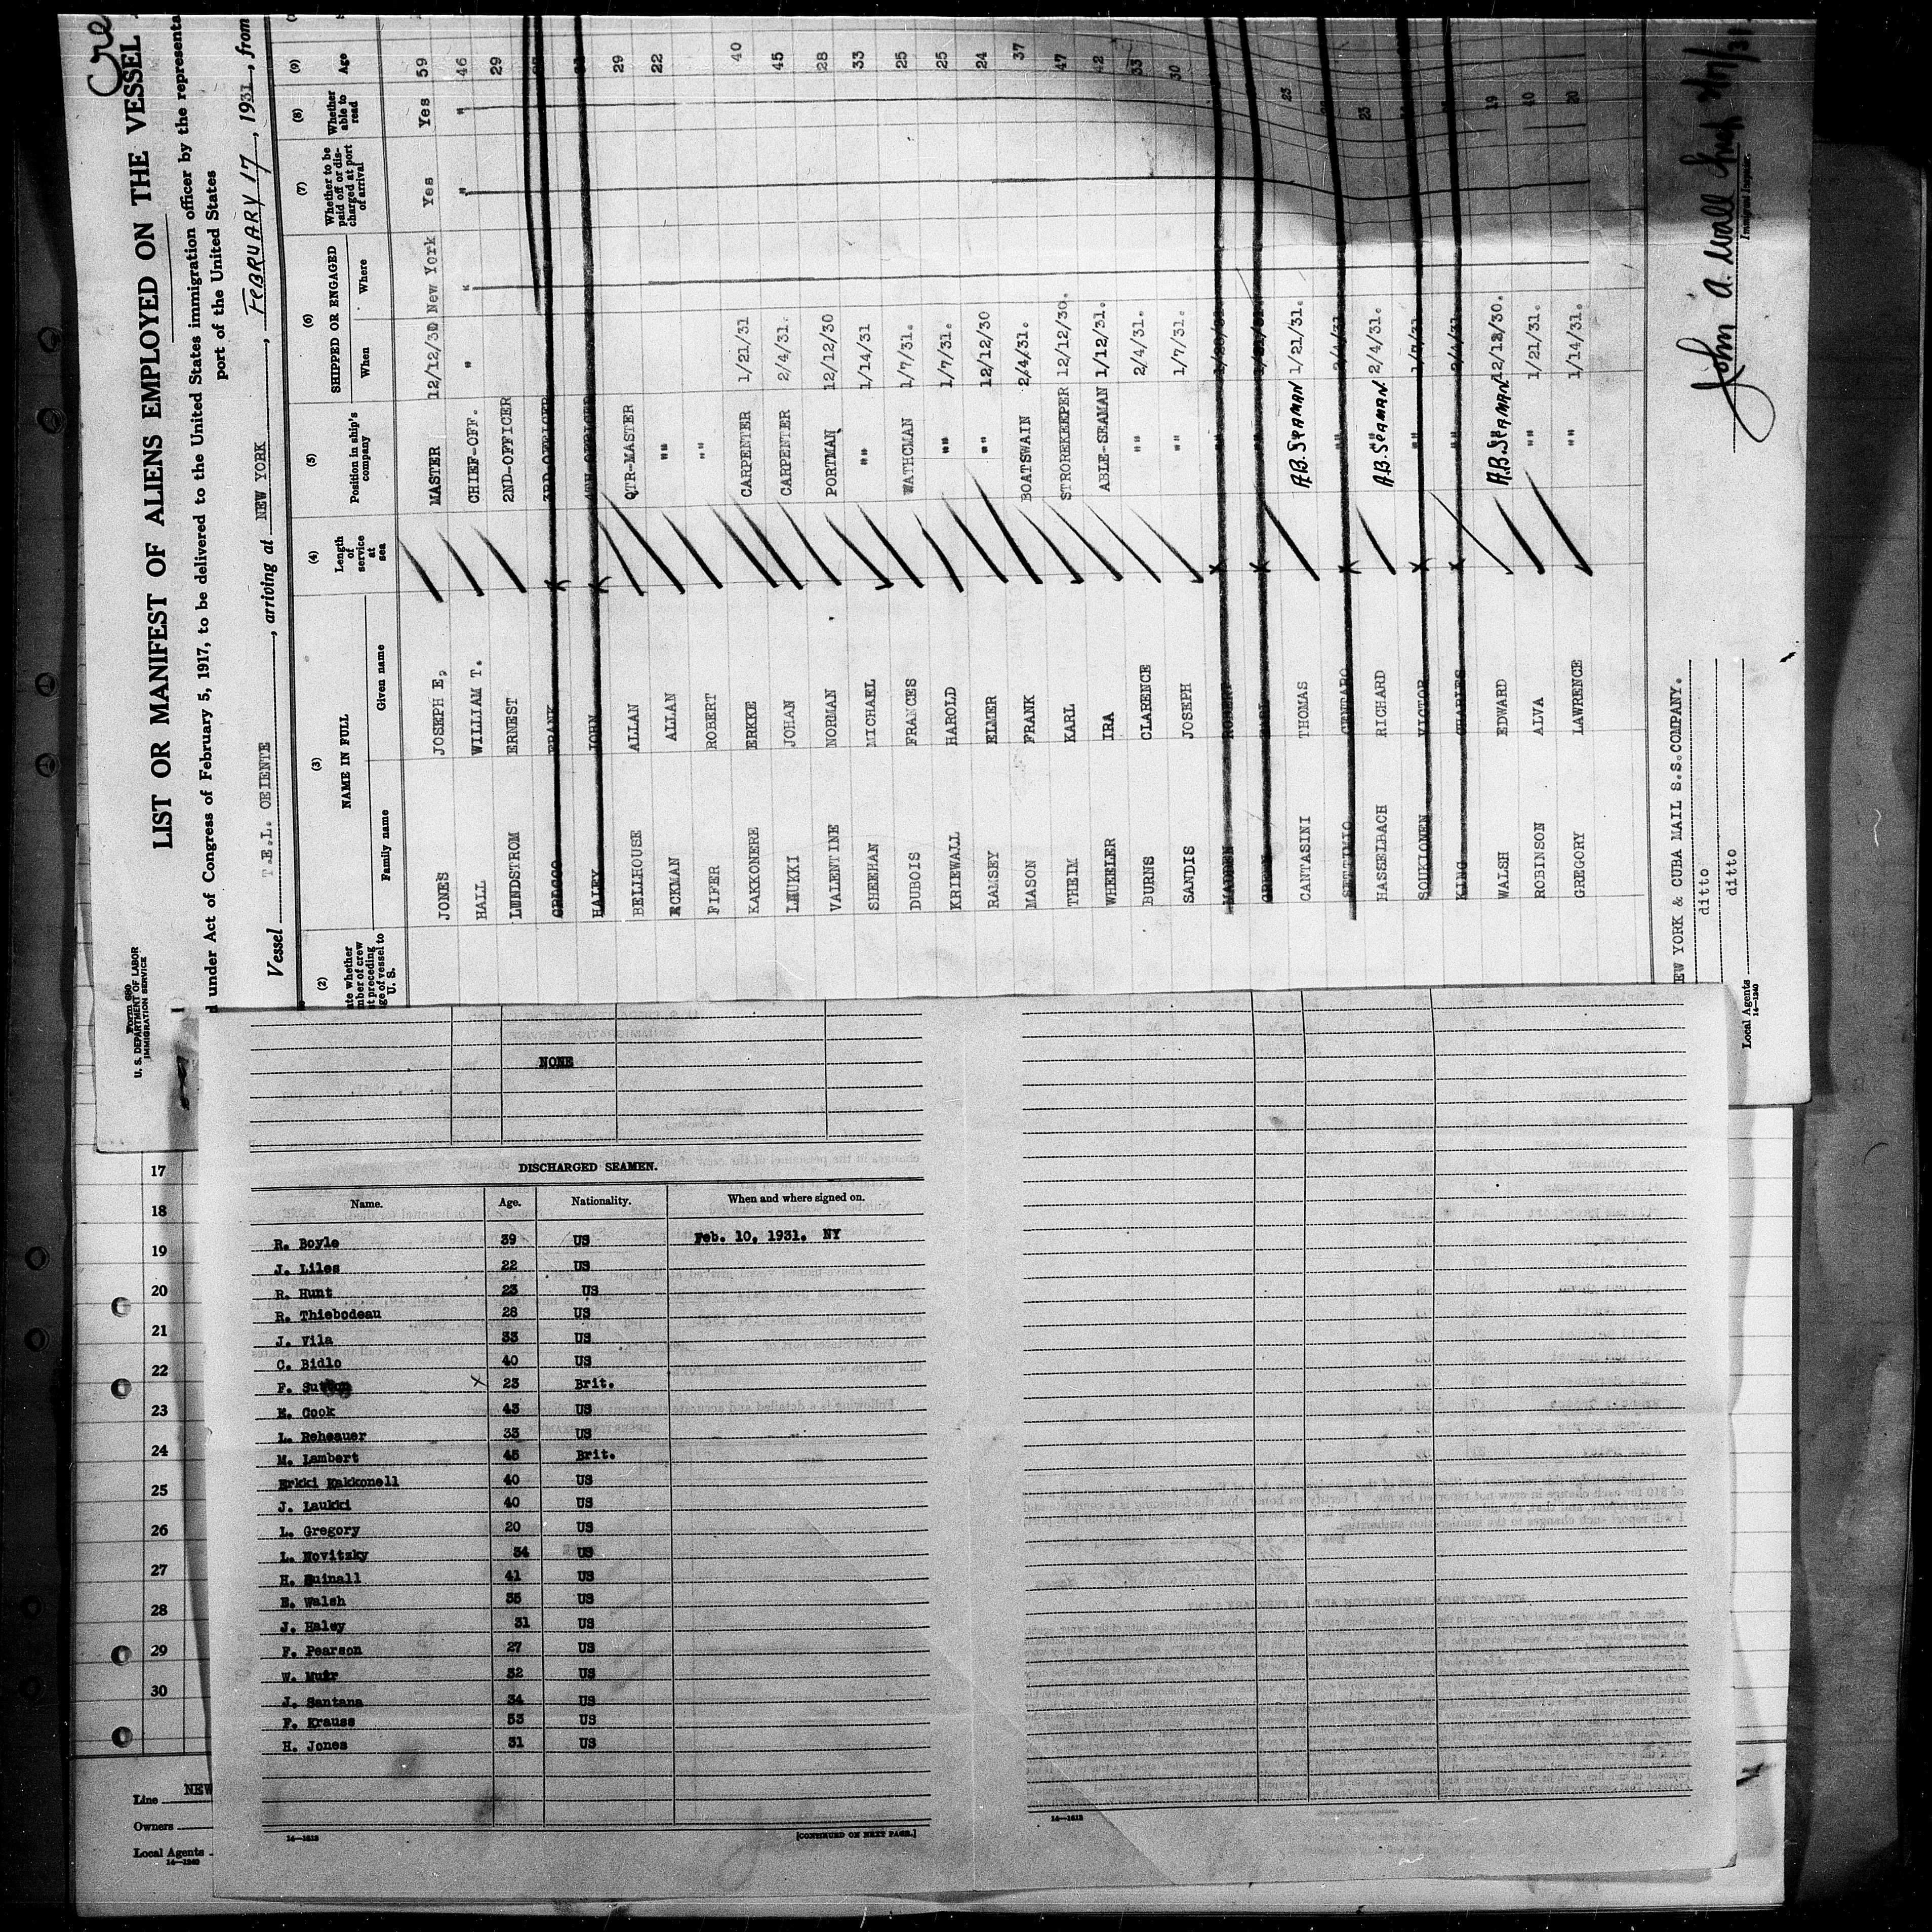 Cre
Form 680
U. S. DEPARTMENT OF LABOR
IMMIGRATION SERVICE
LIST OR MANIFEST OF ALIENS EMPLOYED ON THE VESSEL
d under Act of Congress of February 5, 1917, to be delivered to the United States immigration officer by the representa
port of the United States
Vessel T.E.L. OEIENTE, arriving at NEW YORK, FEBRUARY 17, 1931, from
(2) (3) (4) (5) (6) (7) (8) (9)
ate whether
mber of crew
t preceding
ge of vessel to
U. S.
NAME IN FULL
Family name Given name
Length of service at sea
Position in ship's company
SHIPPED OR ENGAGED
When Where
Whether to be paid off or discharged at port of arrival
Whether able to read
Age
JONES JOSEPH E, MASTER 12/12/30 New York Yes Yes 59
HALL WILLIAM T. CHIEF-OFF. " " " " 46
LUNDSTROM ERNEST 2ND-OFFICER 29
FRANK 3RD OFFICER
HALEY JOHN 4TH OFFICER
BELLHOUSE ALLAN QTR-MASTER 29
ECKMAN ALLAN "" 22
PIFER ROBERT ""
KAKKONERE ERKKE CARPENTER 1/21/31 40
LAUKKI JOHAN CARPENTER 2/4/31. 45
VALENTINE NORMAN PORTMAN 12/12/30 28
SHEEHAN MICHAEL "" 1/14/31 33
DUBOIS FRANCES WATHCMAN 1/7/31. 25
KRIEWALL HAROLD "" 1/7/31. 25
RAMSEY ELMER "" 12/12/30 24
MASON FRANK BOATSWAIN 2/4/31. 37
THEIM KARL STROREKEEPER 12/12/30. 47
WHEELER IRA ABLE-SEAMAN 1/12/31. 42
BURNS CLARENCE "" 2/4/31. 33
SANDIS JOSEPH "" 1/7/31. 30
MADDEN ROBERT ""
""
CANTASINI THOMAS A.B. SEAMAN 1/21/31. 23
SETTIMIO GENTARO ""
HASSELBACH RICHARD A.B. SEAMAN 2/4/31. 23
SOUKIONEN VICTOR "" 1/7/31
KING CHARLES "" 2/4/31.
WALSH EDWARD A.B. SEAMAN 12/12/30. 19
ROBINSON ALVA "" 1/21/31. 40
GREGORY LAWRENCE "" 1/14/31. 20
EW YORK & CUBA MAIL S.S.COMPANY.
ditto
ditto
Local Agents
14—1240
John A. Wall
Immigrant Inspector.
NONE
DISCHARGED SEAMEN.
Name. Age. Nationality. When and where signed on.
R. Boyle 39 US Feb. 10, 1931. NY
J. Liles 22 US
R. Hunt 23 US
R. Thiebodeau 28 US
J. Vila 33 US
C. Bidlo 40 US
F. x 23 Brit.
E. Cook 43 US
L. Reheauer 33 US
M. Lambert 45 Brit.
Erkki Kakkonell 40 US
J. Laukki 40 US
L. Gregory 20 US
L. Novitzky 34 US
H. Guinall 41 US
E. Walsh 35 US
J. Haley 31 US
F. Pearson 27 US
W. Muir 32 US
J. Santana 34 US
F. Krauss 53 US
H. Jones 31 US
14—1613
[CONTINUED ON NEXT PAGE.]
14—1613
17
18
19
20
21
22
23
24
25
26
27
28
29
30
Line NEW
Owners
Local Agents
14—1240